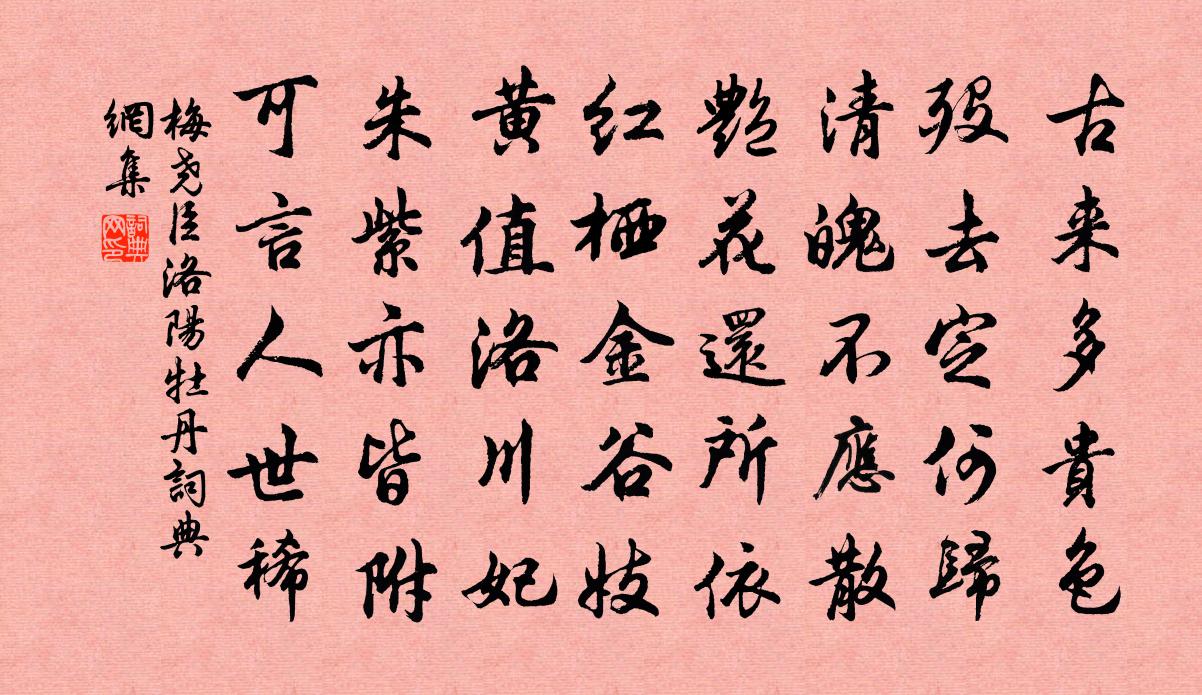 古来多貴色
歿去定何歸
清魄不應散
艷花還所依
红栖金谷妓
黄值洛川妃
朱紫亦皆附
可言人世稀
梅尧臣洛陽牡丹詞典
網集
詞典网印